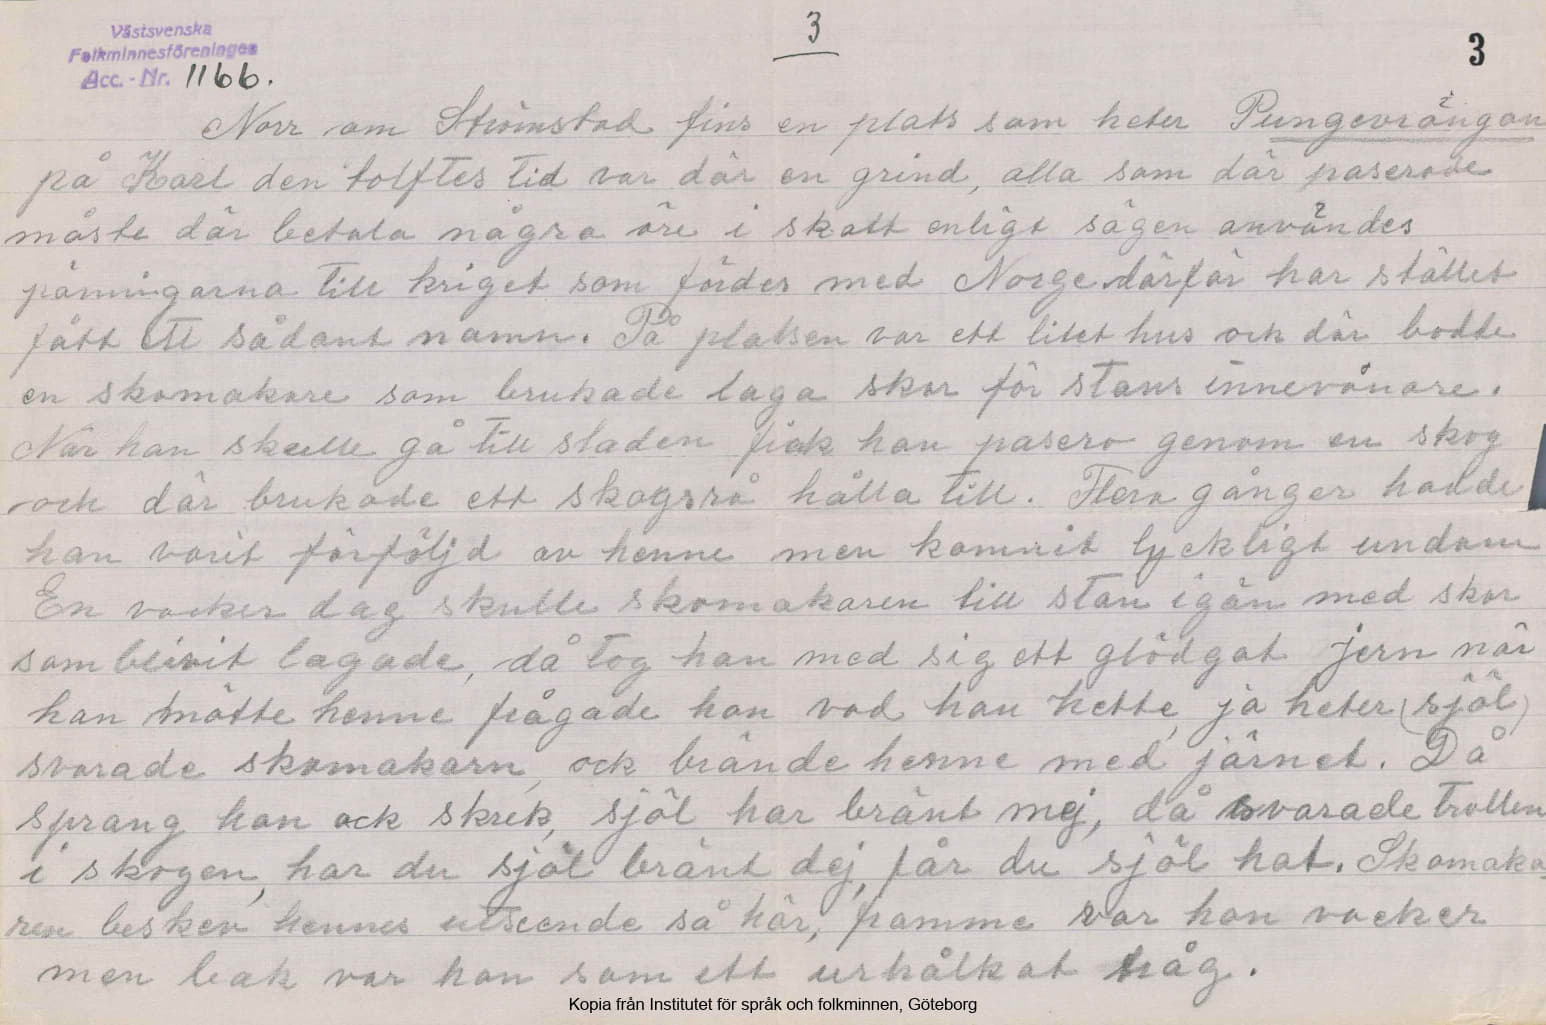 3
3
Västsvenska
Folkminnesföreningen
Acc.-Nr. 1166.
Norr om Strömstad fins en plats som heter Pungevrängan
på Karl den tolftes tid var där en grind, alla som där paserade
måste där betala några öre i skatt enligt sägen användes
päningarna till kriget som fördes med Norge därför har stället
fått ett sådant namn. På platsen var ett litet hus ock där bodde
en skomakare som brukade laga skor för stans innevånare.
När han skulle gå till staden fick han pasera genom en skog
ock där brukade ett skogsrå hålla till. Flera gånger hadde
han varit förföljd av henne men kommit lyckligt undan
En vacker dag skulle skomakaren till stan igän med skor
som blivit lagade, då tog han med sig ett glödgat jern när
han mötte henne frågade hon vad han hette, ja heter (själ)
svarade skomakarn, ock brände henne med järnet. Då
sprang hon ock skrek, själ har bränt mej, då svarade trollen
i skogen, har du själ bränt dej, får du själ hat. Skomaka-
ren beskev hennes utseende så här, framme var hon vacker
men bak var hon som ett urhålkat tråg.
Kopia från Institutet för språk och folkminnen, Göteborg